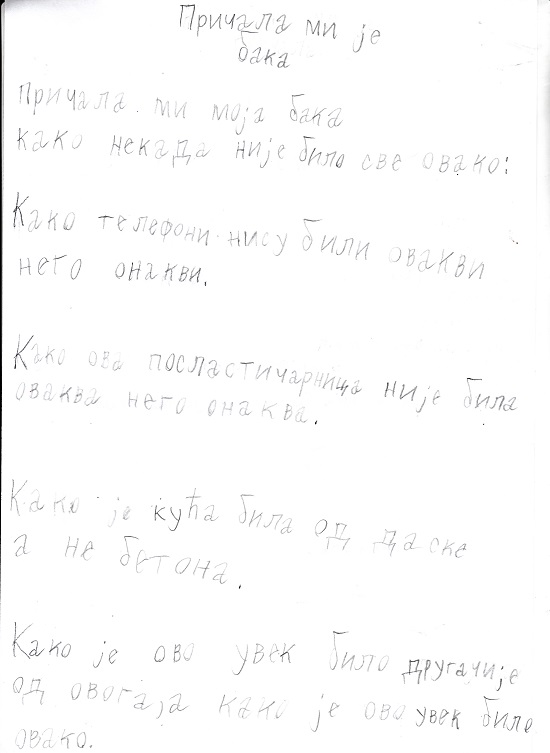 Причала ми је
бака
Причала ми моја бака
како некада није било све овако:
Како телефони нису били овакви
него онакви.
Како ова посластичарница није била
оваква него онаква.
Како је кућа била од даске
а не бетона.
Како је ово увек било другачије
од овога, ја како је ово увек било
овако.